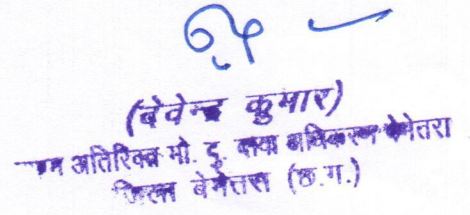 (देवेन्द्र कुमार)
अतिरिक्त मो. दु. दावा अधिकरण बेमेतरा
जिला बेमेतरा (छ.ग.)